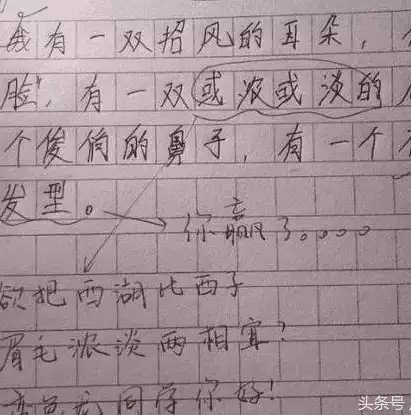 我有一双招风的耳朵,
脸,有一双或浓或淡的
个俊俏的鼻子,有一个
发型。
你赢了。。。。
欲把西湖比西子
眉毛浓淡两相宜?
同学你好!
头条号